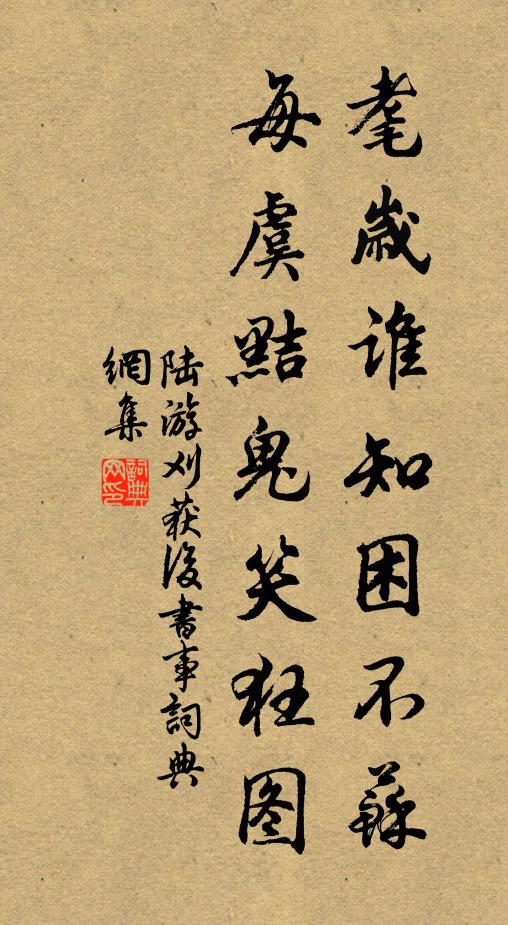 耄歲谁知困不蘇
每虞黠鬼笑狂图
陆游刈获後書事詞典
網集
詞典網印